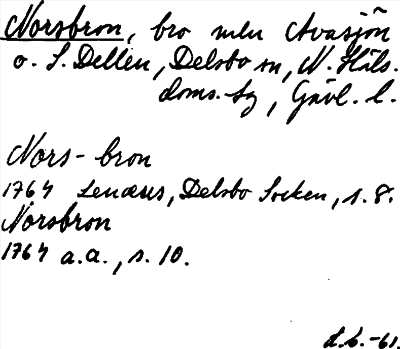 Norsbron, bro mln Avasjön
o. S. Dellen, Delsbo sn, N. Häls.
doms. sg, Gävl. l.
Nors-bron
1764 Lenæus, Delsbo Socken, s. 8.
Norsbron
1764 a.a., s. 10.
-61.